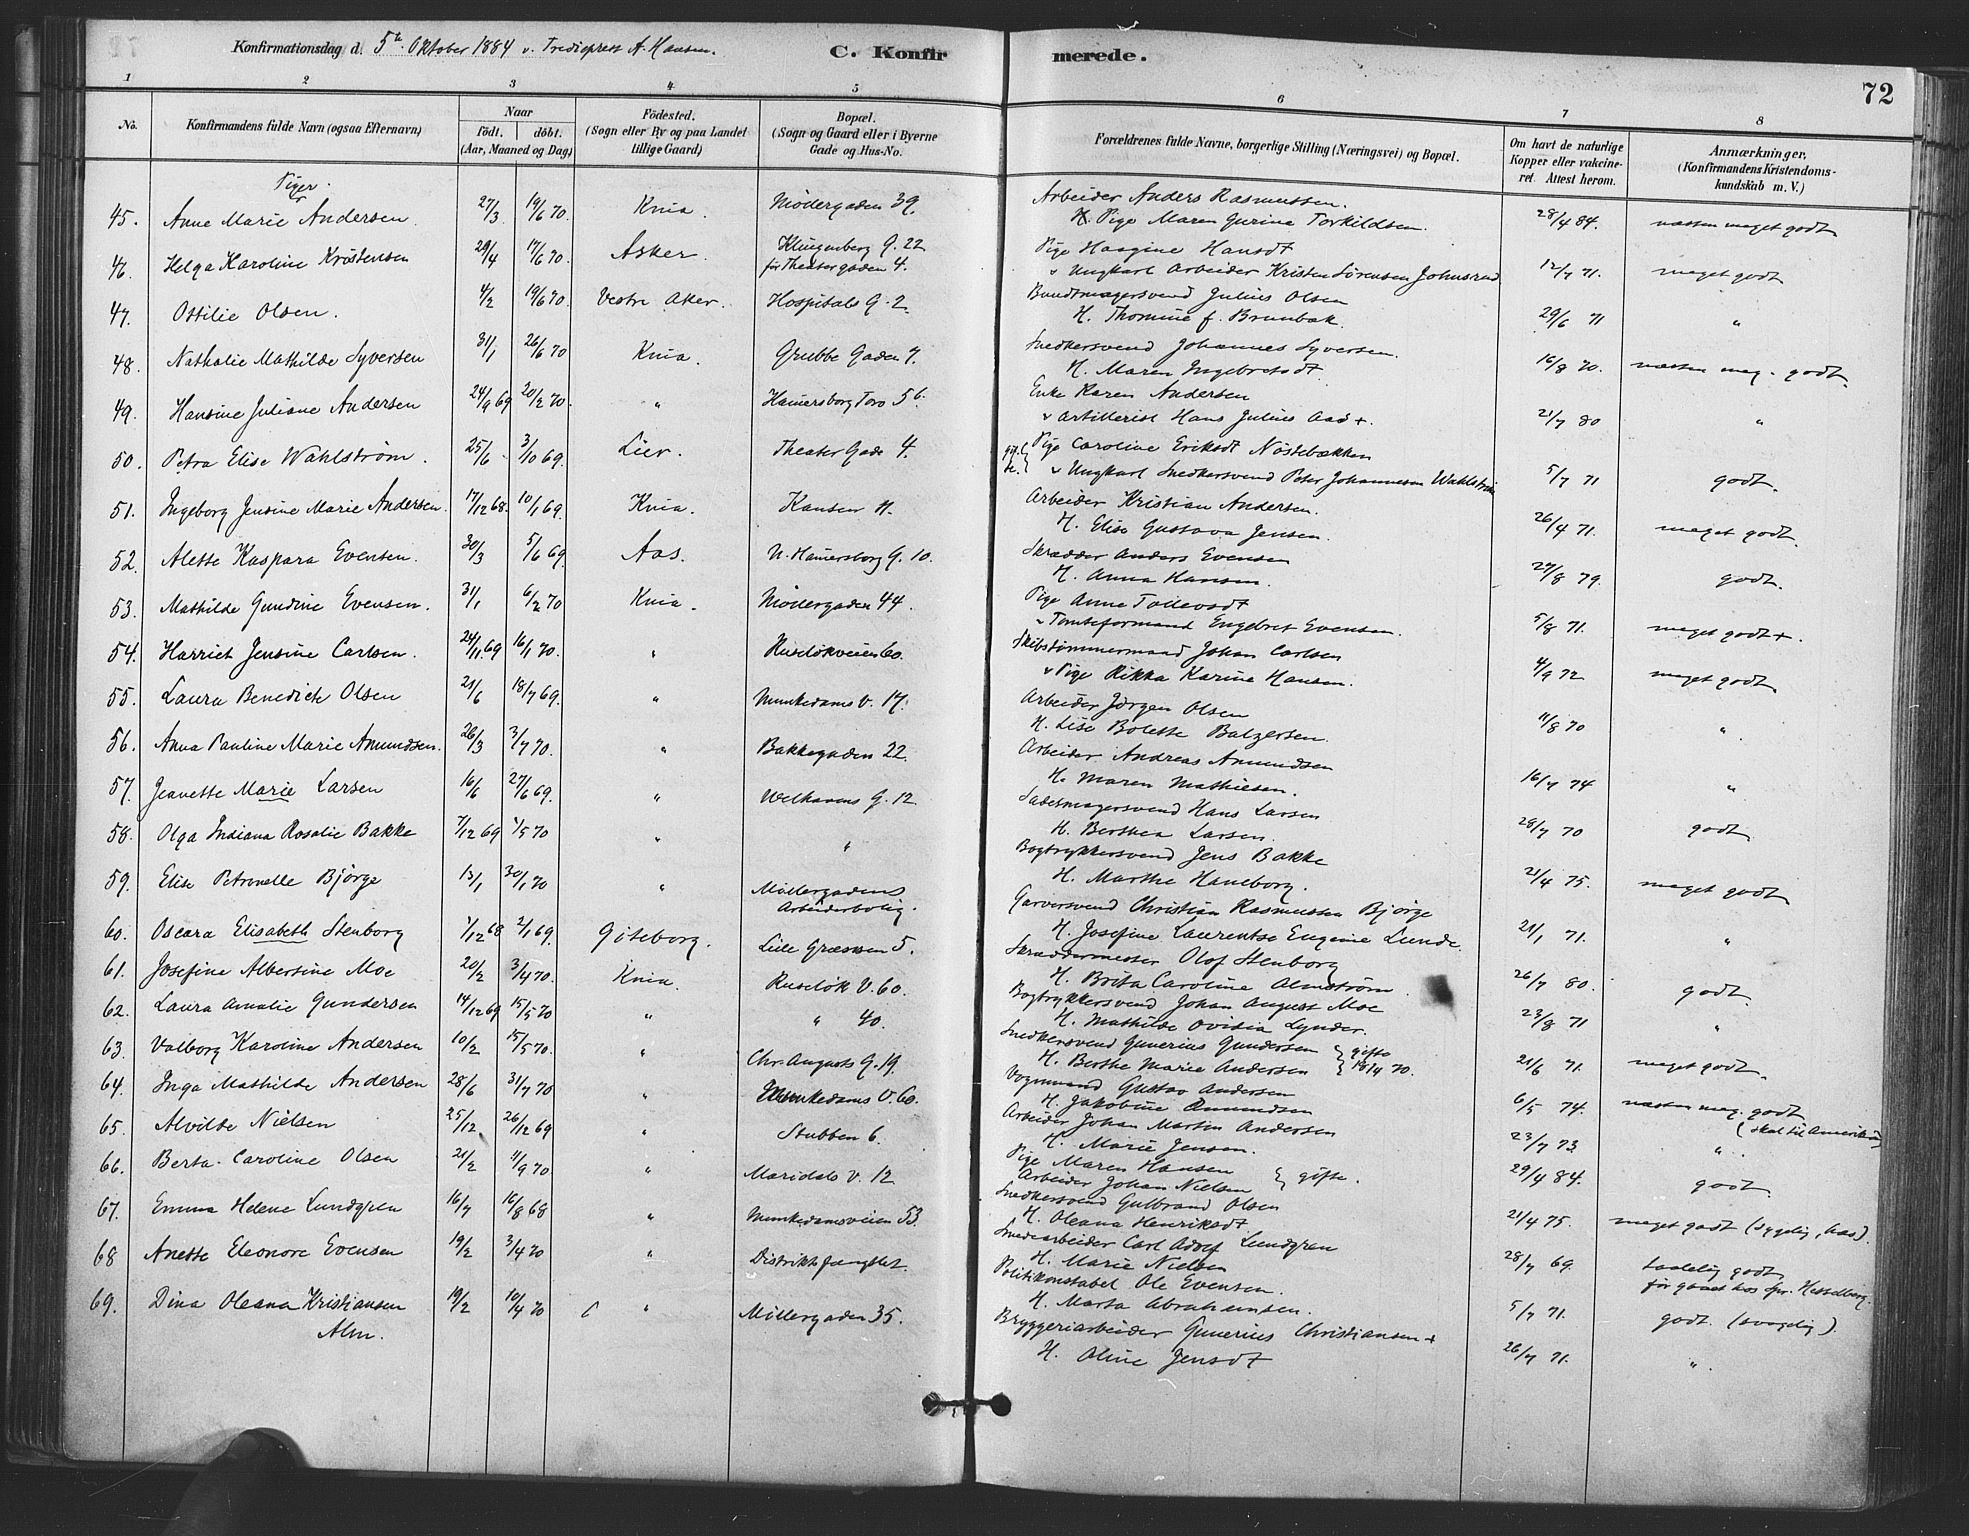 Konfirmationsdag d. 5te Oktober 1884 v. Trediepræst A. Hansen.
C. Konfirmerede.
72
1 2 3 4 5 6 7 8
No.
Konfirmandens fulde Navn (ogsaa Efternavn)
Naar
født. døbt.
(Aar, Maaned og Dag)
Fødested.
(Sogn eller By og paa Landet
tillige Gaard)
Bopæl.
(Sogn og Gaard eller i Byerne
Gade og Hus-No.
Forældrenes fulde Navne, borgerlige Stilling (Næringsvei) og Bopæl.
Om havt de naturlige
Kopper eller vakcine-
ret. Attest herom.
Anmærkninger,
(Konfirmandens Kristendoms-
kundskab m. V.)
Piger.
45. Anne Marie Andersen 27/3 19/6 70. Knia. Mödergaden 39. Arbeider Anders Rasmussen. 28/4 84. næsten meget godt
H. Pige Maren Gurine Torkildsen.
46. Helga Karoline Kristensen 29/4 17/6 70. Asker. Klingenberg G. 22 Pige Haagine Hansdt 12/7 71. meget godt
før Theatergaden 4. v Ungkarl Arbeider Kristen Sørensen Johnsrud
47. Ottilie Olsen. 4/2 19/6 70 Vestre Aker. Hospitals G. 2 Bundtmagersvend Julius Olsen 29/6 71 "
H. Thomine f. Brunbæk.
48. Nathalie Mathilde Syversen 31/1 26/6 70 Knia. Grubbe Gaden 7. Snedkersvend Johannes Syversen. 16/8 70. næsten meg. godt.
H. Maren Ingebretsdt
49. Hansine Juliane Andersen 24/9 69 20/2 70. " Hamersborg Torv 56. Enke Karen Andersen 21/7 80 "
v Artillerist Hans Julius Aas +.
50. Petra Elise Wahlstrøm. 25/6 3/10 69. Lier. Theater Gade 4. Pige Caroline Eriksdt Nöstebækken 5/7 71 godt.
v Ungkarl Snedkersvend Peter Johannesen Wahlström
51. Ingeborg Jensine Marie Andersen. 17/12 68. 10/1 69. Knia. Kansen 11. Arbeider Kristian Andersen. 26/4 71. meget godt.
H. Elise Gustava Jensen.
52. Alette Kaspara Evensen. 30/3 5/6 69. Aas. N. Hamersborg G. 10. Skrædder Anders Evensen 27/8 79. godt.
H. Anna Hansen.
53. Mathilde Gundine Evensen. 31/1 6/2 70 Knia. Mödergaden 44. Pige Anne Tollevsdt 5/8 71. meget godt +.
v Tomteformand Engebret Evensen.
54. Harriet Jensine Carlsen. 24/11 69 16/1 70. " Ruseløkveien 60. Skibstømmermand Johan Carlsen 4/9 72 meget godt
v Pige Rikka Karine Hansen.
55. Laura Benedicte Olsen 21/6 18/7 69. " Munkedams V. 17. Arbeider Jørgen Olsen 11/8 70 "
H. Lise Bolette Balzersen.
56. Anna Pauline Marie Amundsen. 26/3 3/7 70. " Bakkegaden 22. Arbeider Andreas Amundsen 16/7 74 "
H. Maren Mathiesen.
57. Jeanette Marie Larsen 16/6 27/6 69. " Welhavens G. 12 Sadelmagersvend Hans Larsen 28/7 70 godt
H. Berthea Larsen.
58. Olga Indiana Rosalie Bakke 7/12 69 1/5 70 " " Bogtrykkersvend Jens Bakke 21/4 75. meget godt
H. Marthe Haneborg.
59. Elise Petronelle Bjørge 13/1 30/1 70 " Møllergadens Garversvend Christian Rasmussen Bjørge 21/1 71. "
Arbeiderbolig. H. Josefine Laurentse Eugenie Lunde.
60. Oscara Elisabeth Stenborg 7/12 68 2/1 69. Göteborg. Lille Grænsen 5. Skræddermester Olof Stenborg 26/7 80. godt.
H. Brita Caroline Almström.
61. Josefine Albertine Moe 20/2 3/4 70. Knia. Ruseløk V. 60. Bogtrykkersvend Johan August Moe 23/8 71 "
H. Mathilde Ovidia Lynder.
62. Laura Amalie Gundersen 14/12 69 15/5 70 " " 40. Snedkersvend Gunerius Gundersen } gifte 21/6 71. meget godt.
H. Berthe Marie Andersen } 18/4 70.
63. Valborg Karoline Andersen 10/2 15/5 70. " Chr. Augusts G. 19 Vognmand Gustav Andersen 6/5 74. næsten meg. godt
H. Jakobine Amundsen (skal til Amerika)
64. Inga Mathilde Andersen 28/6 31/7 70 " Munkedams V. 60. Arbeider Johan Martin Andersen 23/7 73 "
H. Marie Jensen.
65. Alvilde Nielsen 25/12 26/12 69 " Stubben 6. Pige Maren Hansen } gifte. 29/4 84. godt.
Arbeider Johan Nielsen
66. Berta Caroline Olsen 21/2 11/9 70 " Maridals V. 12 Snedkersvend Gulbrand Olsen 21/4 75. meget godt (sygelig, hæs).
H. Oleana Henriksdt
67. Emma Helene Lundgren 16/7 16/8 68 " Munkedamsveien 53. Smedarbeider Carl Adolf Lundgren 28/7 69. taalelig godt
H. Marie Nielsen før gaaet hos Spr. Hesselberg.
68 Anette Eleonore Evensen 19/2 3/4 70 " Distriktsfængslet. Politikonstabel Ole Evensen. 5/7 71. godt (svagelig).
H. Marta Abrahamsen.
69. Dina Oleana Kristiansen 19/2 10/4 70 " Møllergaden 35. Bryggeriarbeider Gunerius Christiansen + 26/7 71. "
Alm. H. Oline Jensdt